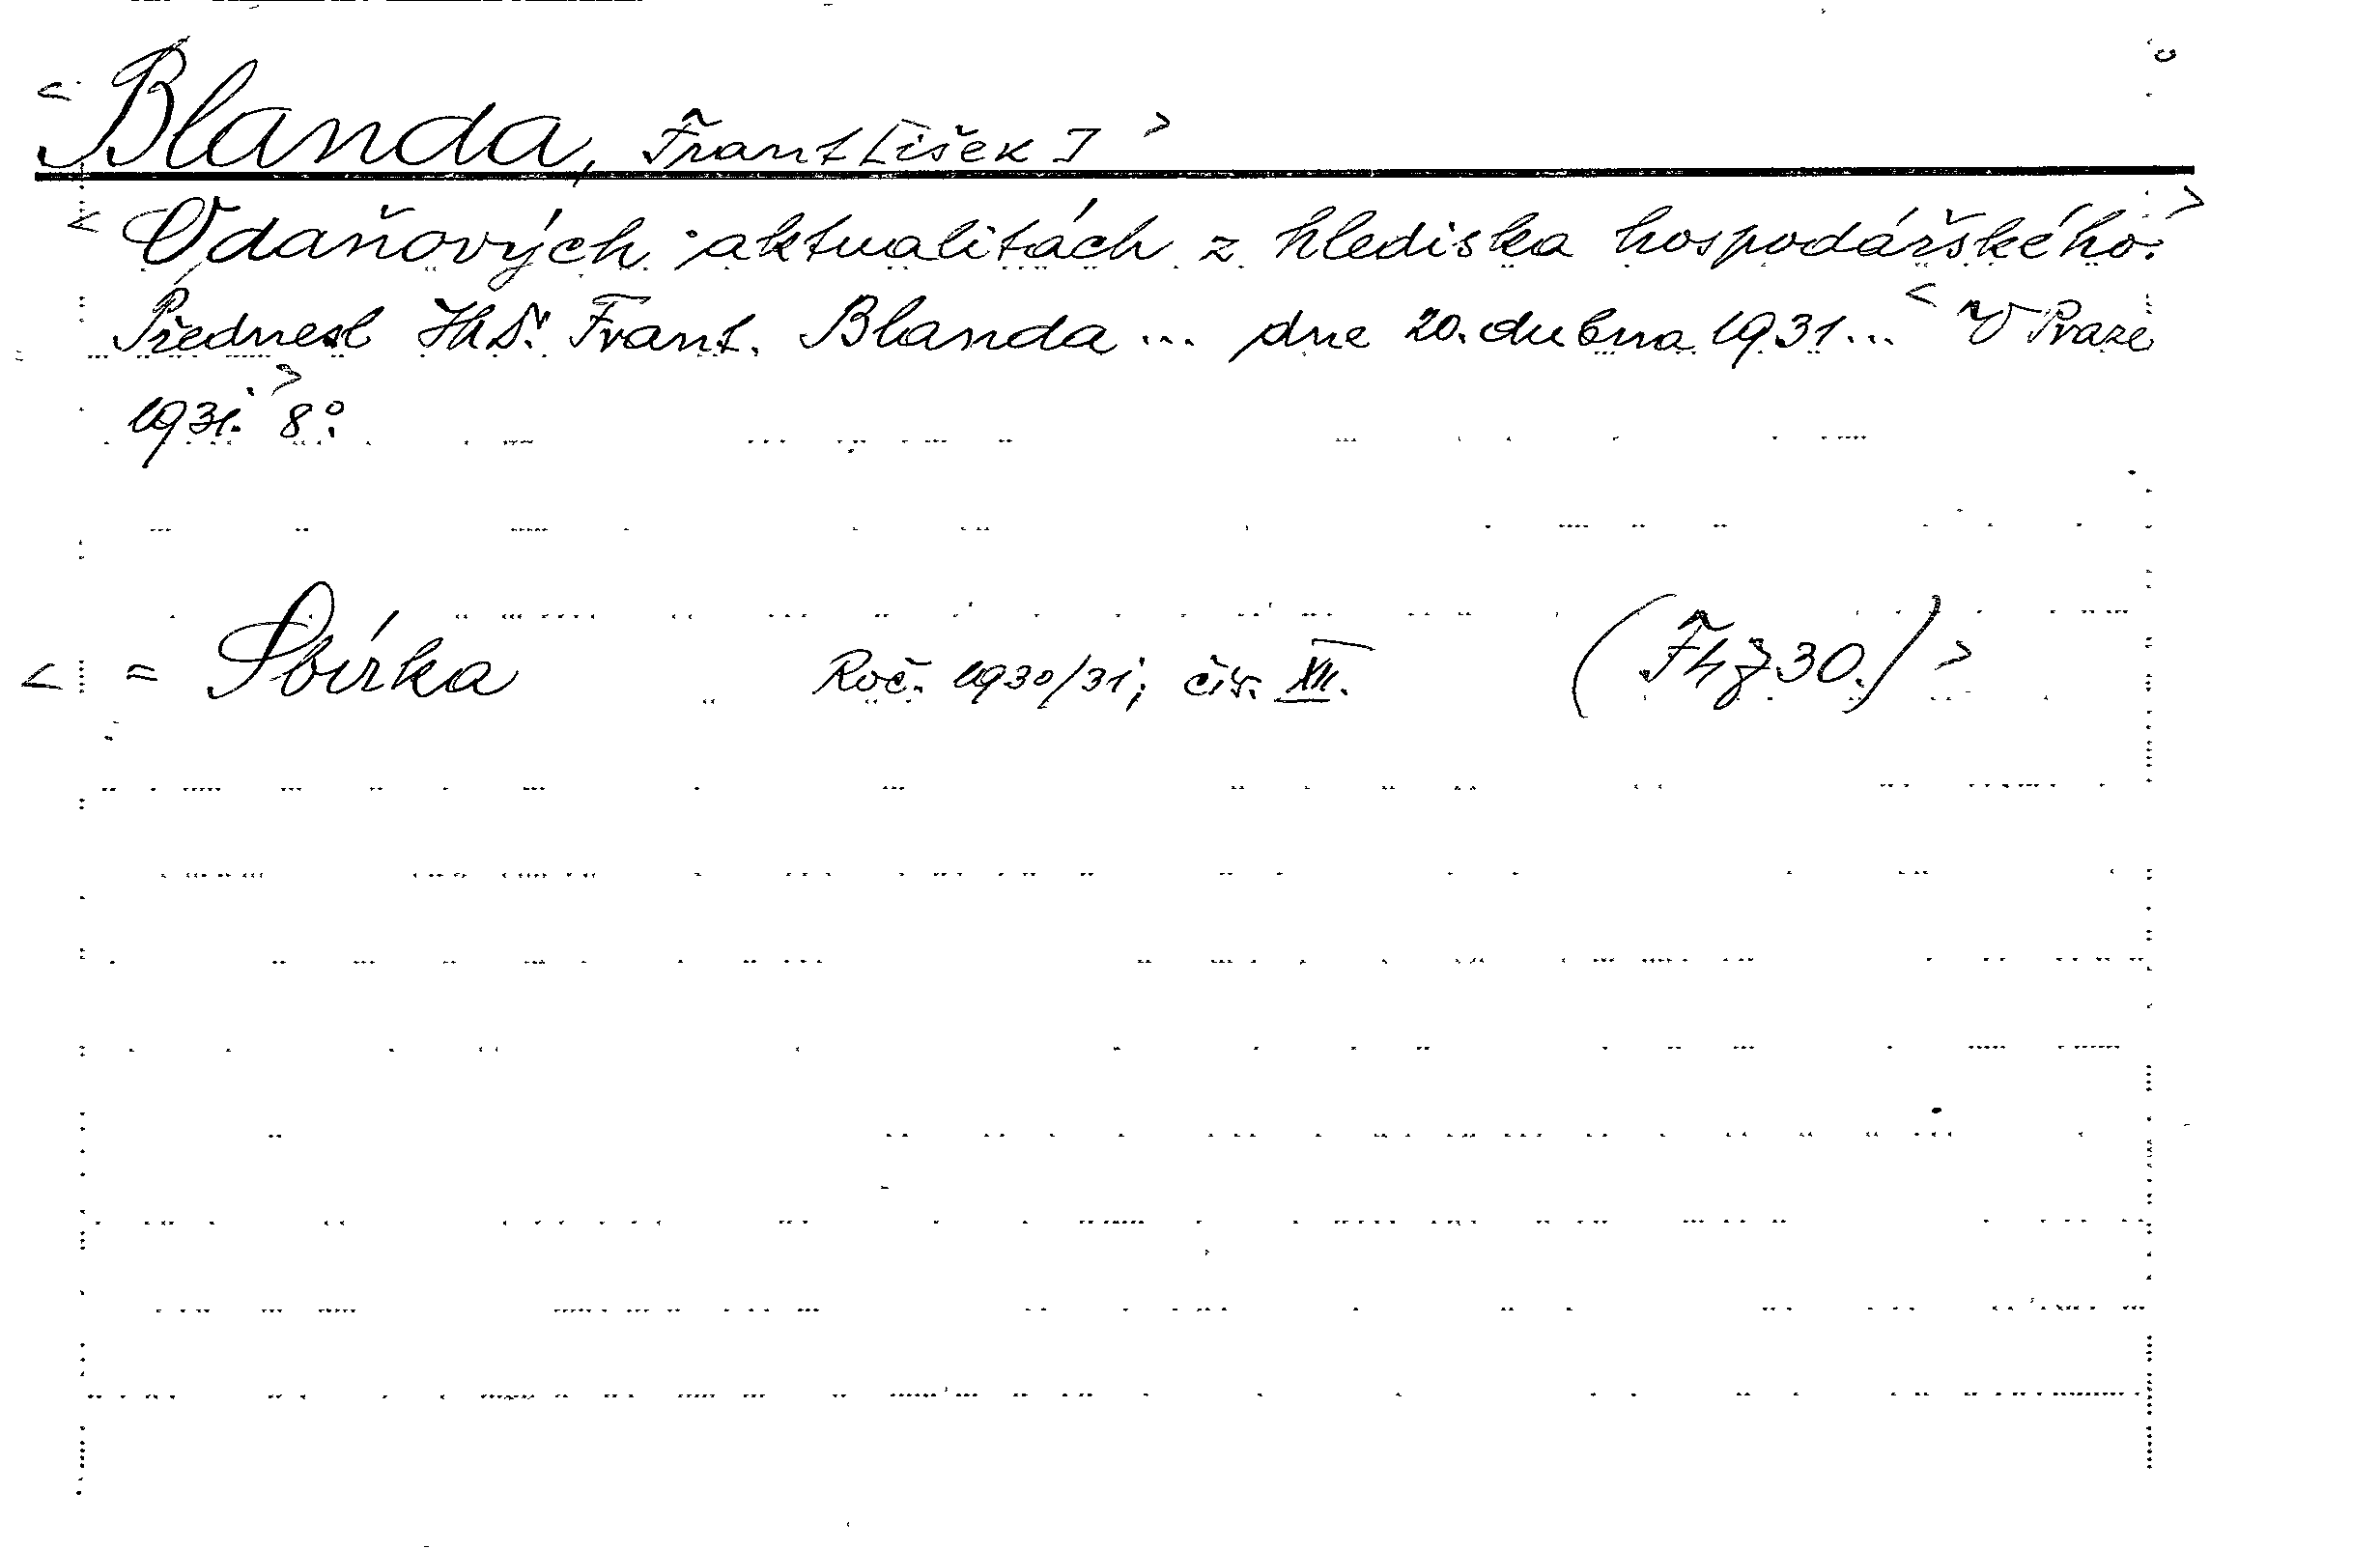 < Blanda, Frant[išek] >
< O daňových aktualitách z hlediska hospodářského. >
Přednesl JhDr. Frant. Blanda ... dne 20. dubna 1931... < V Praze
1931. > 8°.
< = Sbírka Roč. 1930/31, čís. XII. ( ) >